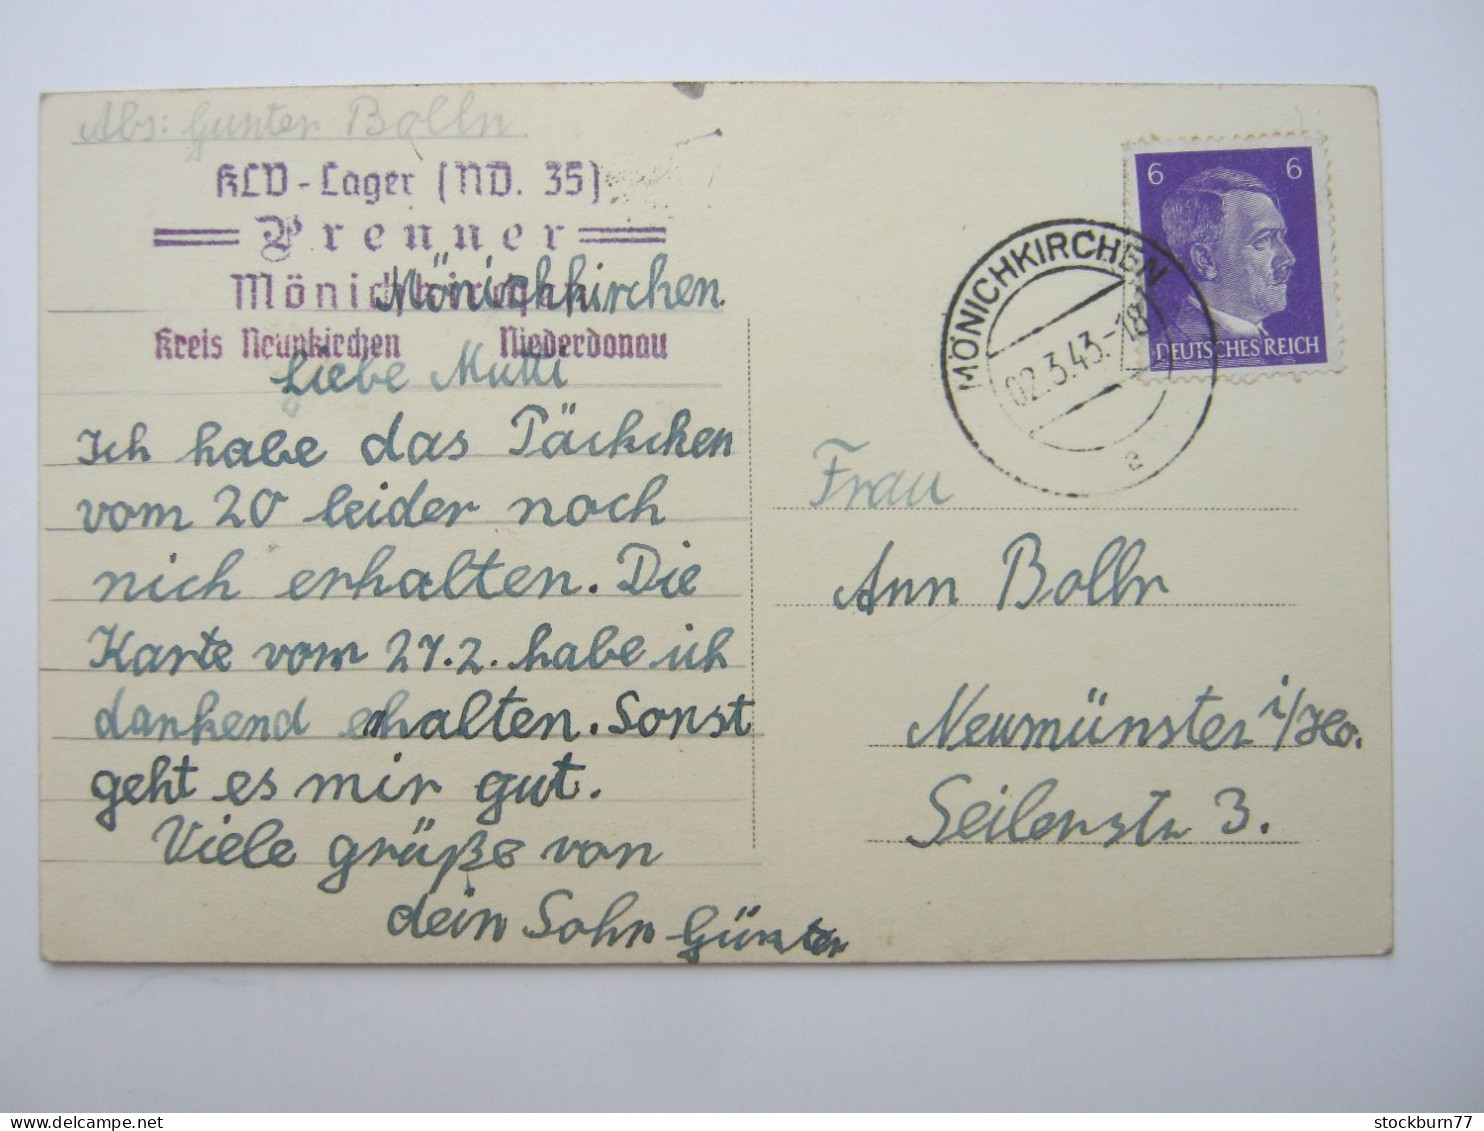 Abs: Gunter Bolln
KLV-Lager (ND. 35)
Prenner
Mönichkirchen
Mönichkirchen.
Kreis Neunkirchen Niederdonau
Liebe Mutti
Ich habe das Päckchen
vom 20 leider noch
nich erhalten. Die
Karte vom 27.2. habe ich
dankend erhalten. Sonst
geht es mir gut.
Viele grüße von
dein Sohn Günter
6 6
DEUTSCHES REICH
MÖNICHKIRCHEN
02.3.43.-18
a
Frau
Ann Bolln
Neumünster i/Ho.
Seilerstr 3.
stockburn77